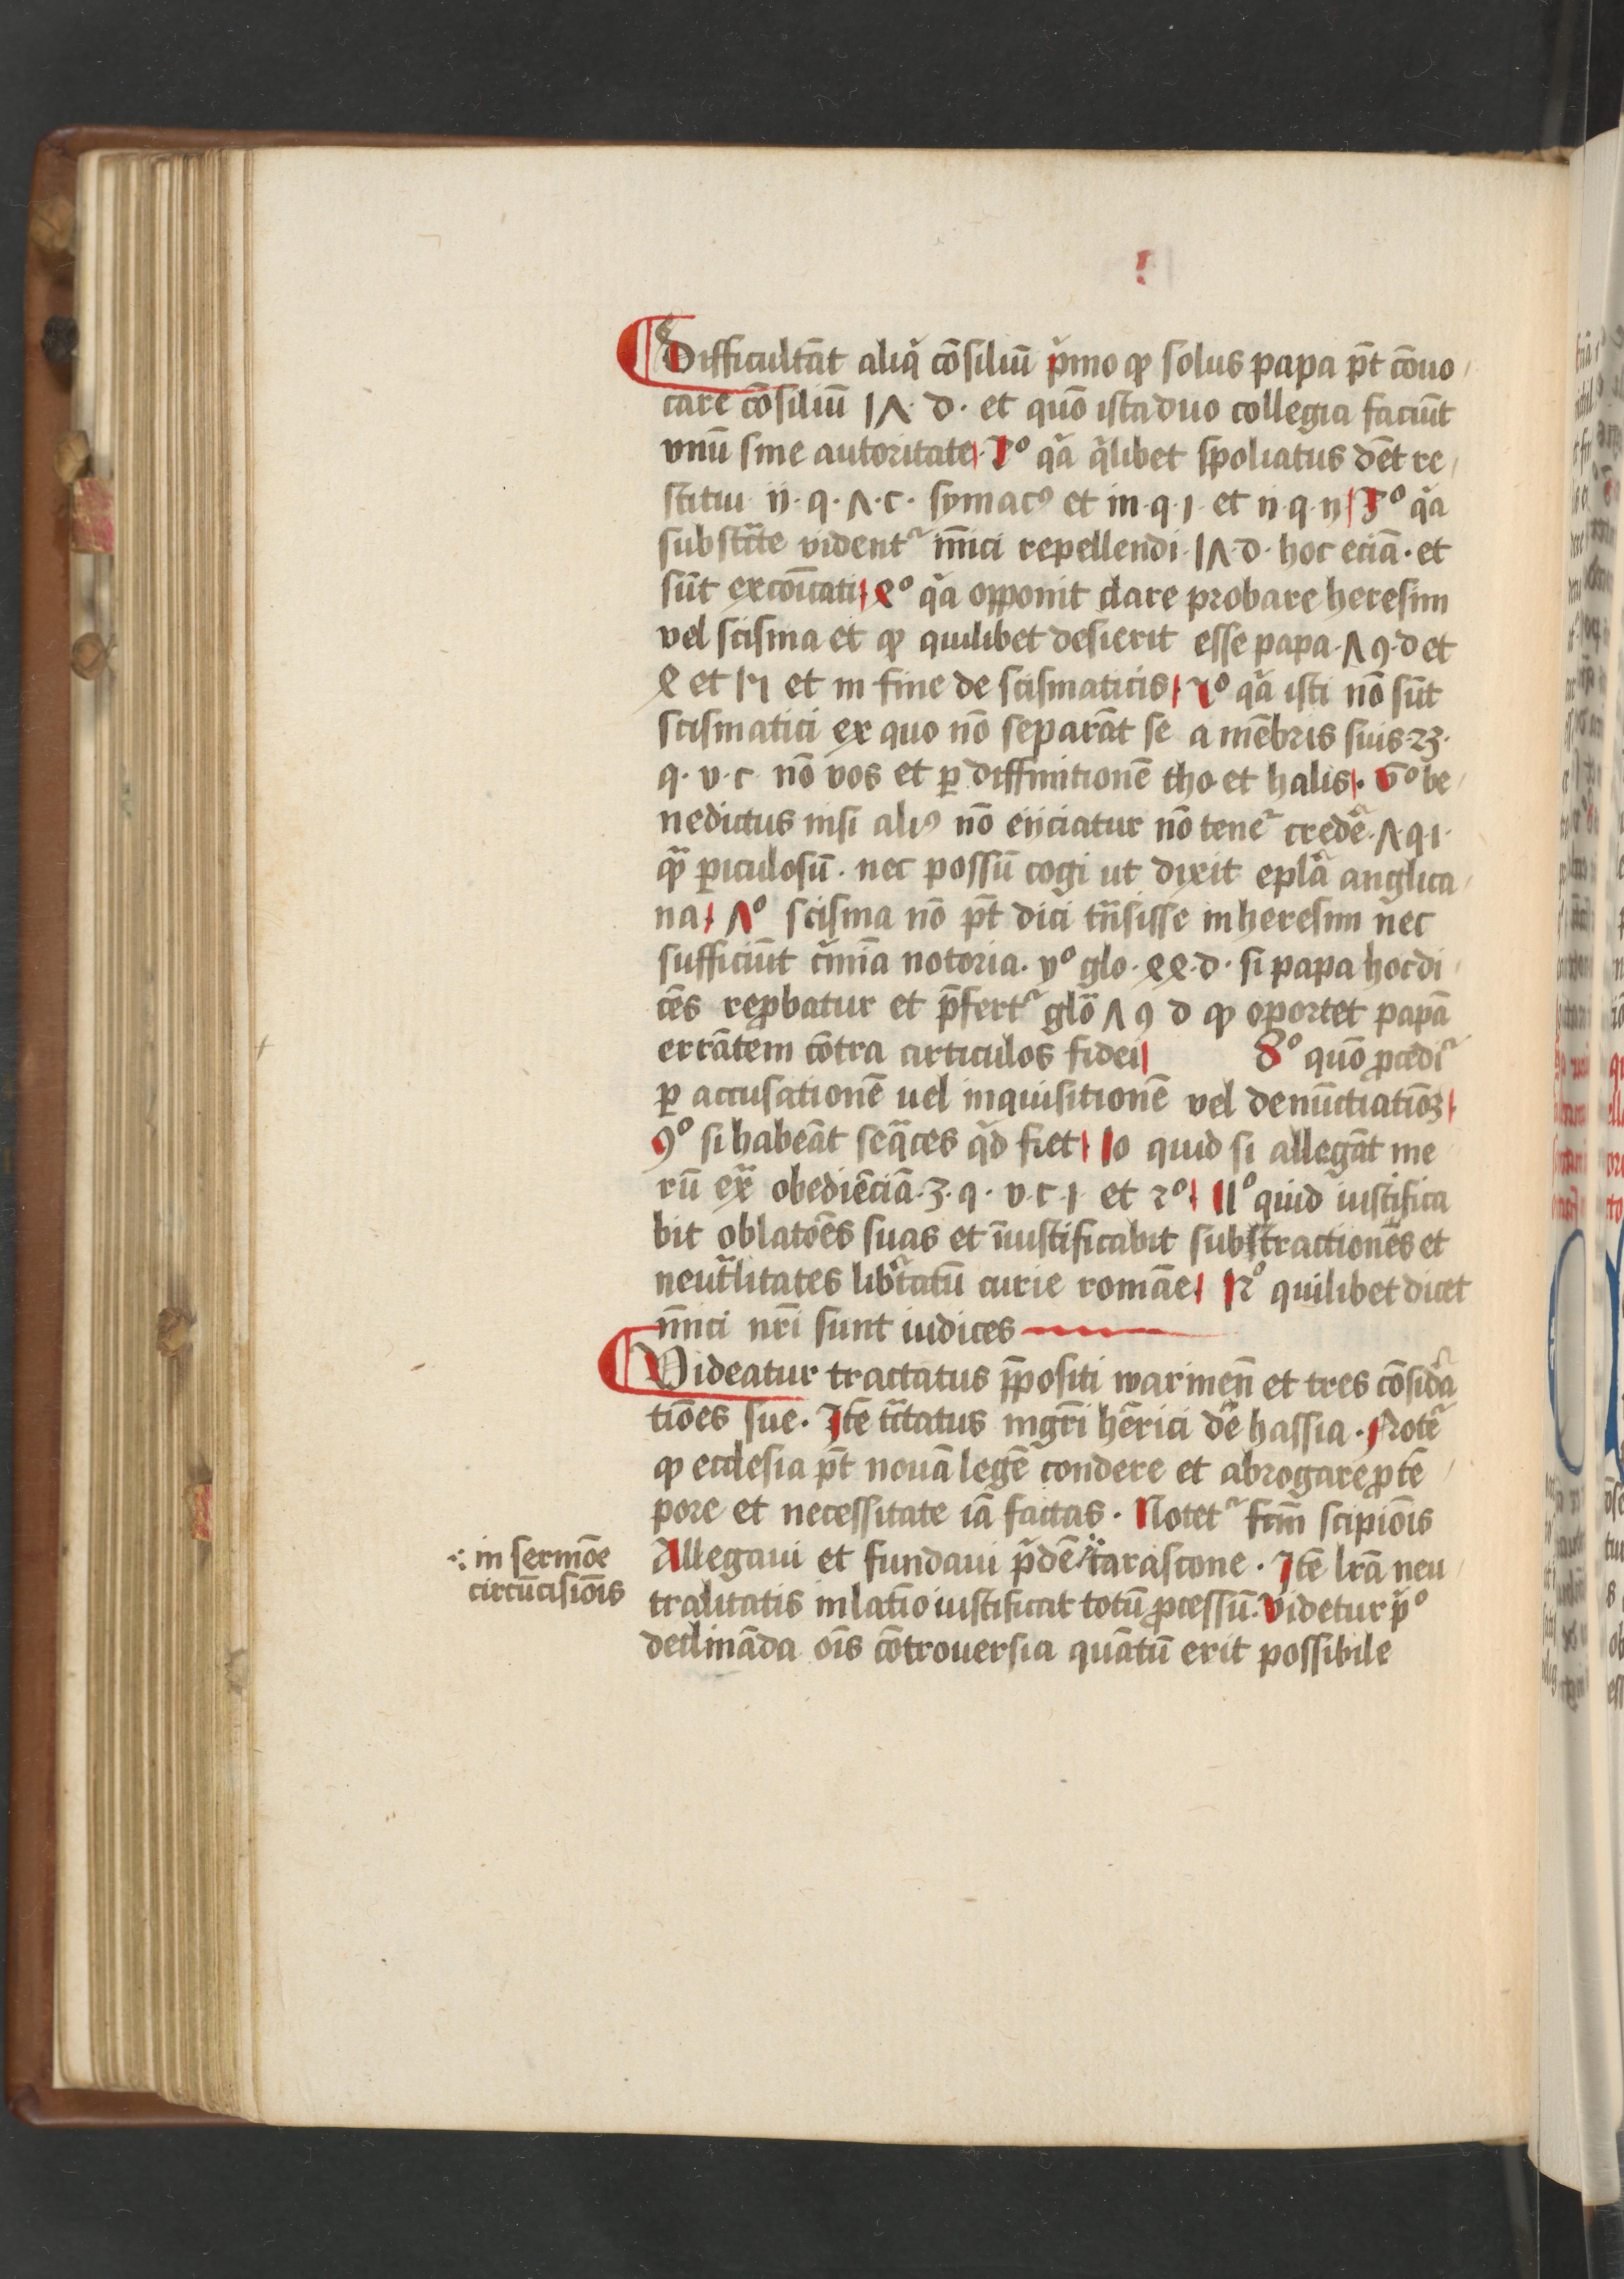 Difficultāt aliq̄ cōsiliū p̄mo qꝫ solus papa pn̄t cōuo
care cōsiliū 17. d. et quō ista duo collegia faciūt
vnū sine autoritate. 2º qa q̄libet spoliatus dēt re
stitui ii. q. 7. c. symac⁹ et iii. q. 1. et ii. q. ii 3º qa
substāte vident᷑ inīci repellendi. 17. d. hoc eciā. et
sūt excōīcati 4º qa opponit clare probare heresim
vel scisma et qꝫ quilibet desierit esse papa. 79. d et
4 et 15 et in fine de scismaticis 5º qa isti nō sūt
scismatici ex quo nō separāt se a mēbris suis. 23.
q. v. c nō vos et ꝑ diffinitionē tho et halis. 6º be
nedictus nisi ali⁹ nō eiiciatur nō tene᷑ credē. 7 q. 1.
qꝫ ꝑiculosū. nec possū cogi ut dixit epl̄a anglica
na 7º scisma nō pt̄ dici trn̄sisse in heresim nec
sufficiūt c̄mīa notoria. yº glo. 44. d. si papa hoc di
cēs reꝓbatur et p̄fert᷑ glō 79 d qꝫ oportet papā
errātem cōtra articulos fidei 8º quō ꝓcedi᷑
ꝑ accusationē uel inquisitionē vel denūctiatiōꝫ
9º si habeāt seq̄ces qd fiet 10 quid si allegāt me
rū ex̄ obediēciā. 3. q. v. c. 1. et 2º 11º quid iustifica
bit oblatōes suas et iniustificabit substractionēs et
neut̄litates lib̄tatū curie romāe 12º quilibet dicet
inīci nr̄i sunt iudices
Videatur tractatus p̄positi warmeñ et tres cōsida
tiōes sue. Itē tr̄ctatus mgr̄i hērici dē hassia. Notē᷑
qꝫ ecclesia pt̄ nouā legē condere et abrogare ꝓ tē
pore et necessitate iā factas. Notet᷑ fcm̄ scipiōis
Allegaui et fundaui p̄dē tarascone. Itē lr̄a neu
tralitatis in latīo iustificat totū ꝓcessū. Videtur p̄º
declināda oīs cōtrouersia quātū erit possibile
in sermōe
circūcisiōīs